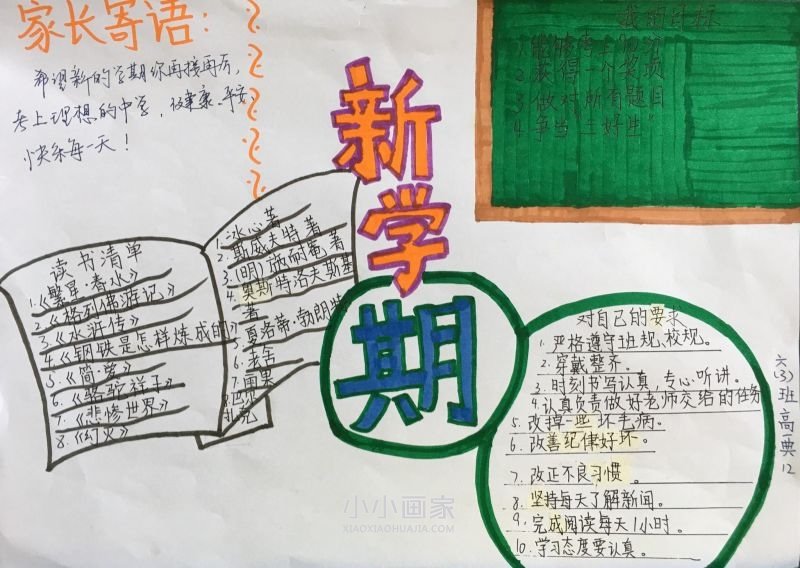 家长寄语：
希望新的学期你再接再厉，
考上理想的中学，健康、平安、
快乐每一天！
我的目标
1. 能够考上90分
2. 获得一个奖项
3. 做对所有题目
4. 争当"三好生"
新学期
读书清单
1.《繁星·春水》
2.《格列佛游记》
3.《水浒传》
4.《钢铁是怎样炼成的》
5.《简·爱》
6.《骆驼祥子》
7.《悲惨世界》
8.《灯火》
1. 冰心著
2. 斯威夫特著
3. (明)施耐庵著
4. 奥斯特洛夫斯基
著
5. 夏洛蒂·勃朗特
6. 老舍
7. 雨果
对自己的要求
1. 严格遵守班规、校规。
2. 穿戴整齐。
3. 时刻书写认真，专心听讲。
4. 认真负责做好老师交给的任务
5. 改掉一些坏毛病。
6. 改善纪律好坏。
7. 改正不良习惯。
8. 坚持每天了解新闻。
9. 完成阅读每天1小时。
10. 学习态度要认真。
六(3)班高一典12
小小画家
XIAOXIAOHUAJIA.COM